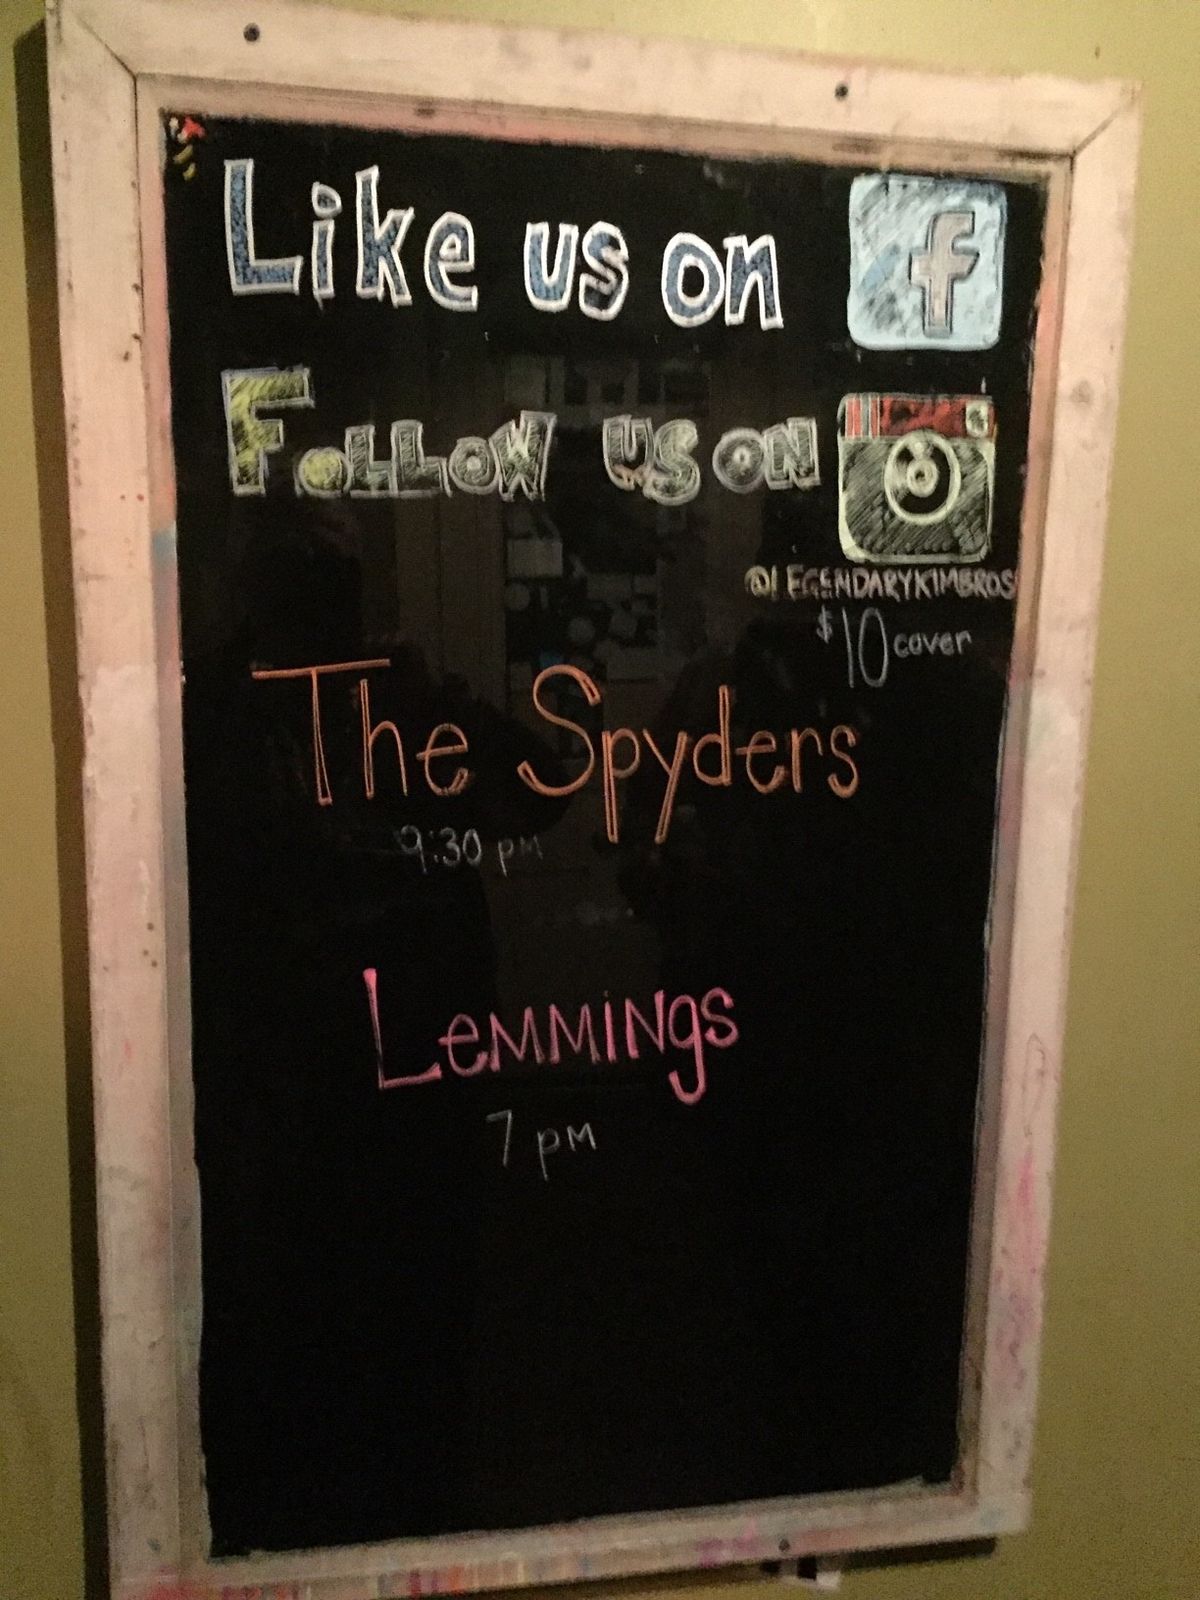 Like us on f
FOLLOW US ON
@LEGENDARYKIMBROS
$10 cover
The Spyders
9:30 pm
LeMMiNgs
7 pm